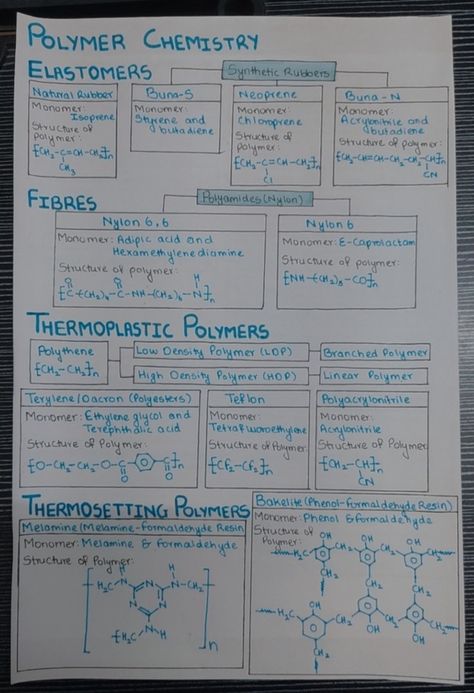 POLYMER CHEMISTRY
ELASTOMERS
Synthetic Rubbers
Natural Rubber
Monomer:
Isoprene
Structure of
polymer:
[CH₂-C=CH-CH₂]n
CH₃
Buna-S
Monomer:
Styrene and
butadiene
Neoprene
Monomer:
Chloroprene
Structure of
polymer:
[CH₂-C=CH-CH₂]n
Cl
Buna-N
Monomer:
Acrylonitrile and
butadiene
Structure of polymer:
[CH₂-CH=CH-CH₂-CH₂-CH]n
CN
FIBRES
Polyamides (Nylon)
Nylon 6,6
Monomer: Adipic acid and
Hexamethylene diamine
Structure of polymer:
O O H
[C-(CH₂)₄-C-NH-(CH₂)₆-N]n
Nylon 6
Monomer: ε-Caprolactam
Structure of polymer:
[NH-(CH₂)₅-CO]n
THERMOPLASTIC POLYMERS
Polythene
[CH₂-CH₂]n
Low Density Polymer (LDP)
Branched Polymer
High Density Polymer (HDP)
Linear Polymer
Terylene/Dacron (Polyesters)
Monomer: Ethylene glycol and
Terephthalic acid
Structure of Polymer:
[O-CH₂-CH₂-O-C C]n
O O
Teflon
Monomer:
Tetrafluoroethylene
Structure of Polymer:
[CF₂-CF₂]n
Polyacrylonitrile
Monomer:
Acrylonitrile
Structure of Polymer
[CH₂-CH]n
CN
THERMOSETTING POLYMERS
Melamine (Melamine-Formaldehyde Resin
Monomer: Melamine & formaldehyde
Structure of Polymer:
H H
H₂C-N N N-CH₂
N N
[H₂C-N-H
n
Bakelite (Phenol-Formaldehyde Resin)
Monomer: Phenol & formaldehyde
Structure of
Polymer:
OH OH OH
H₂C CH₂ CH₂ CH₂
CH₂ CH₂
OH
H₂C CH₂ CH₂
OH OH